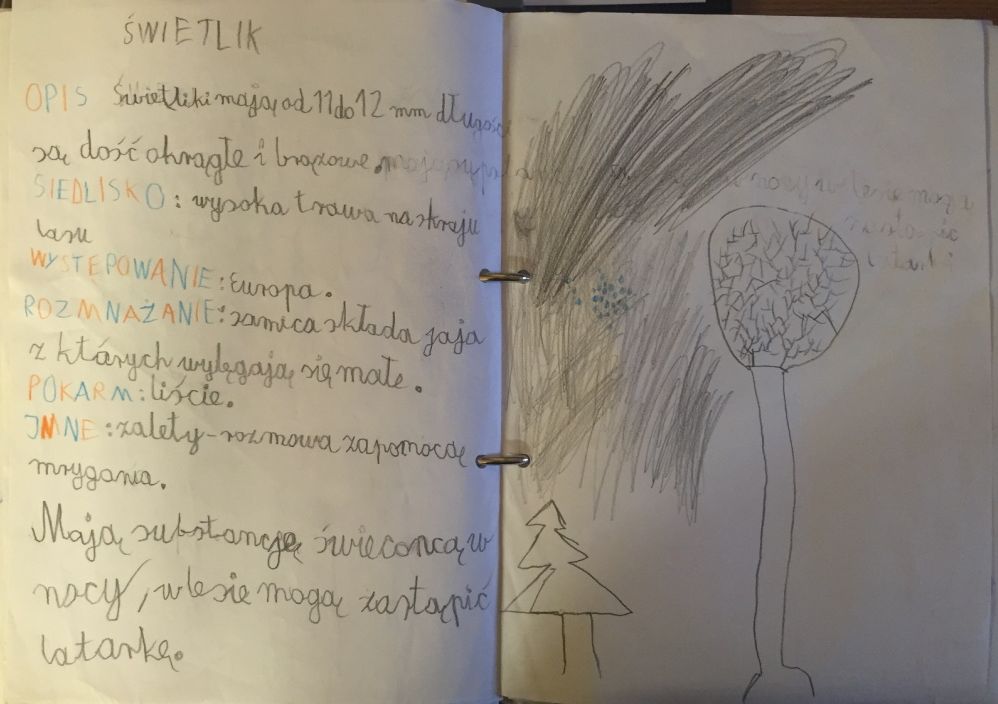 ŚWIETLIK
OPIS Świetliki mają od 11 do 12 mm długości
są dość okrągłe i brązowe.
SIEDLISKO: wysoka trawa na skraju
lasu
WYSTĘPOWANIE: Europa.
ROZMNAŻANIE: samica składa jaja
z których wylęgają się małe.
POKARM: liście.
INNE: zalety - rozmowa zapomocą
mrygania.
Mają substancję świeconcą w
nocy, w lesie mogą zastąpić
latarkę.